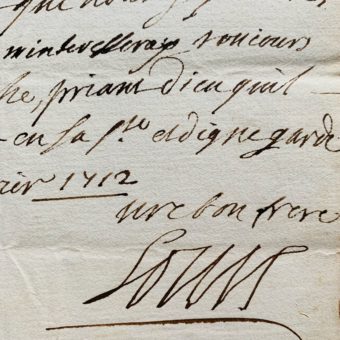 que nous
m'interesseray toujours
he, priant Dieu qu'il
en sa s.te et digne garde
rier 1712
vre bon frere
Louis